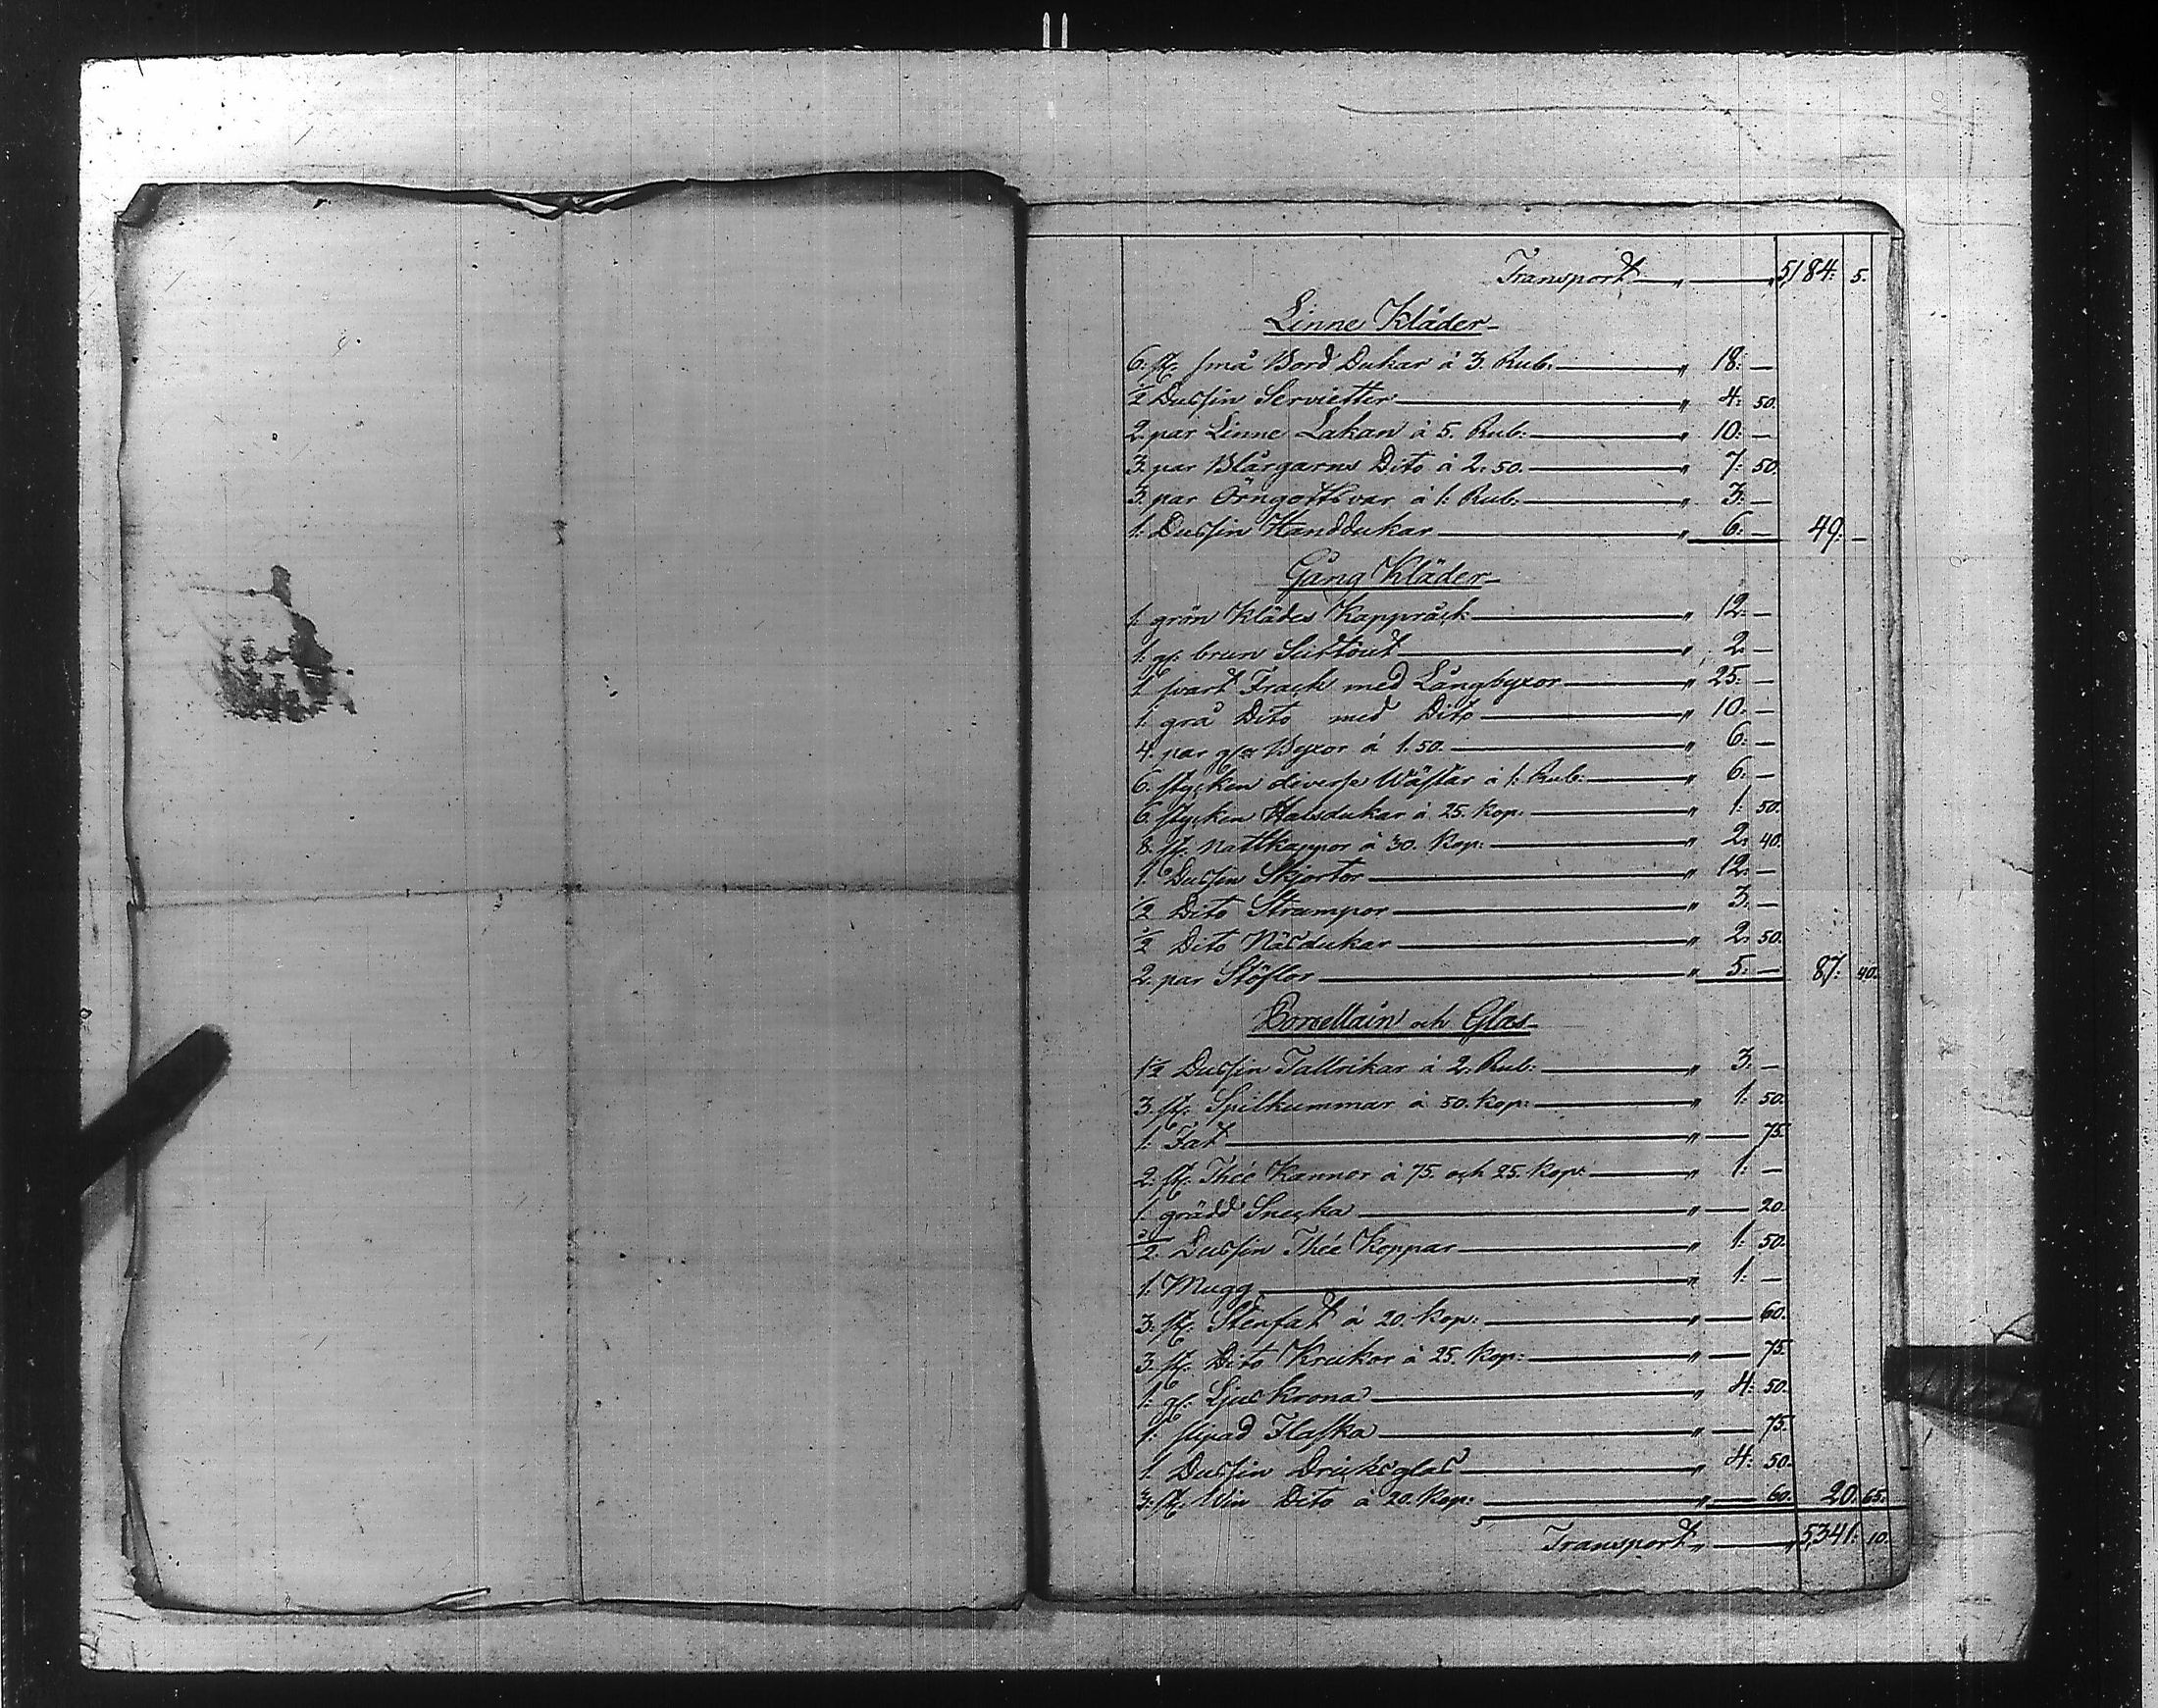 Transport " 5,184: 5.
Linne Kläder
6. st. små Bord Dukar à 3. Rub: " 18: —
½ Dussin Servietter " 4: 50.
2. par Linne Lakan à 5. Rub: " 10: —
3. par Blårgarns Dito à 2. 50. " 7: 50.
3. par Örngottsvar à 1: Rub: " 3: —
1: Dussin Handdukar " 6: — 49: —
Gång Kläder
1: grön Klädes Kappråck " 12: —
1: gl: brun Surtout " 2: —
1 svart Frack med Långbyxor " 25: —
1: grå Dito med Dito " 10: —
4. par gla Byxor à 1. 50. " 6: —
6. stycken diverse Wästar à 1: Rub: " 6: —
6. stycken Halsdukar à 25. Kop: " 1: 50.
8. st. Nattkappor à 30. Kop: " 2: 40.
1. Dussin Skjortor " 12: —
½ Dito Strumpor " 3: —
½ Dito Näsdukar " 2: 50.
2. par Stöflor " 5: — 87: 40.
Porcellain och Glas
1½ Dussin Tallrikar à 2. Rub: " 3: —
3. st. Spilkummar à 50. Kop: " 1: 50.
1: Fat " — 75.
2: st. Thée Kannor à 75. och 25. Kop: " 1: —
1 grädd Snecka " — 20.
Dussin Thée Koppar " 1: 50.
1: Mugg " 1: —
3: st. Stenfat à 20. Kop: " — 60.
3. st. Dito Krukor à 25. Kop: " — 75.
1: gl: Ljus Krona " 4: 50.
1: slipad Flaska " — 75.
1. Dussin Dricksglas " 4: 50.
3: st. Win Dito à 20. Kop: " — 60. 20. 65.
Transport " 5,341: 10.